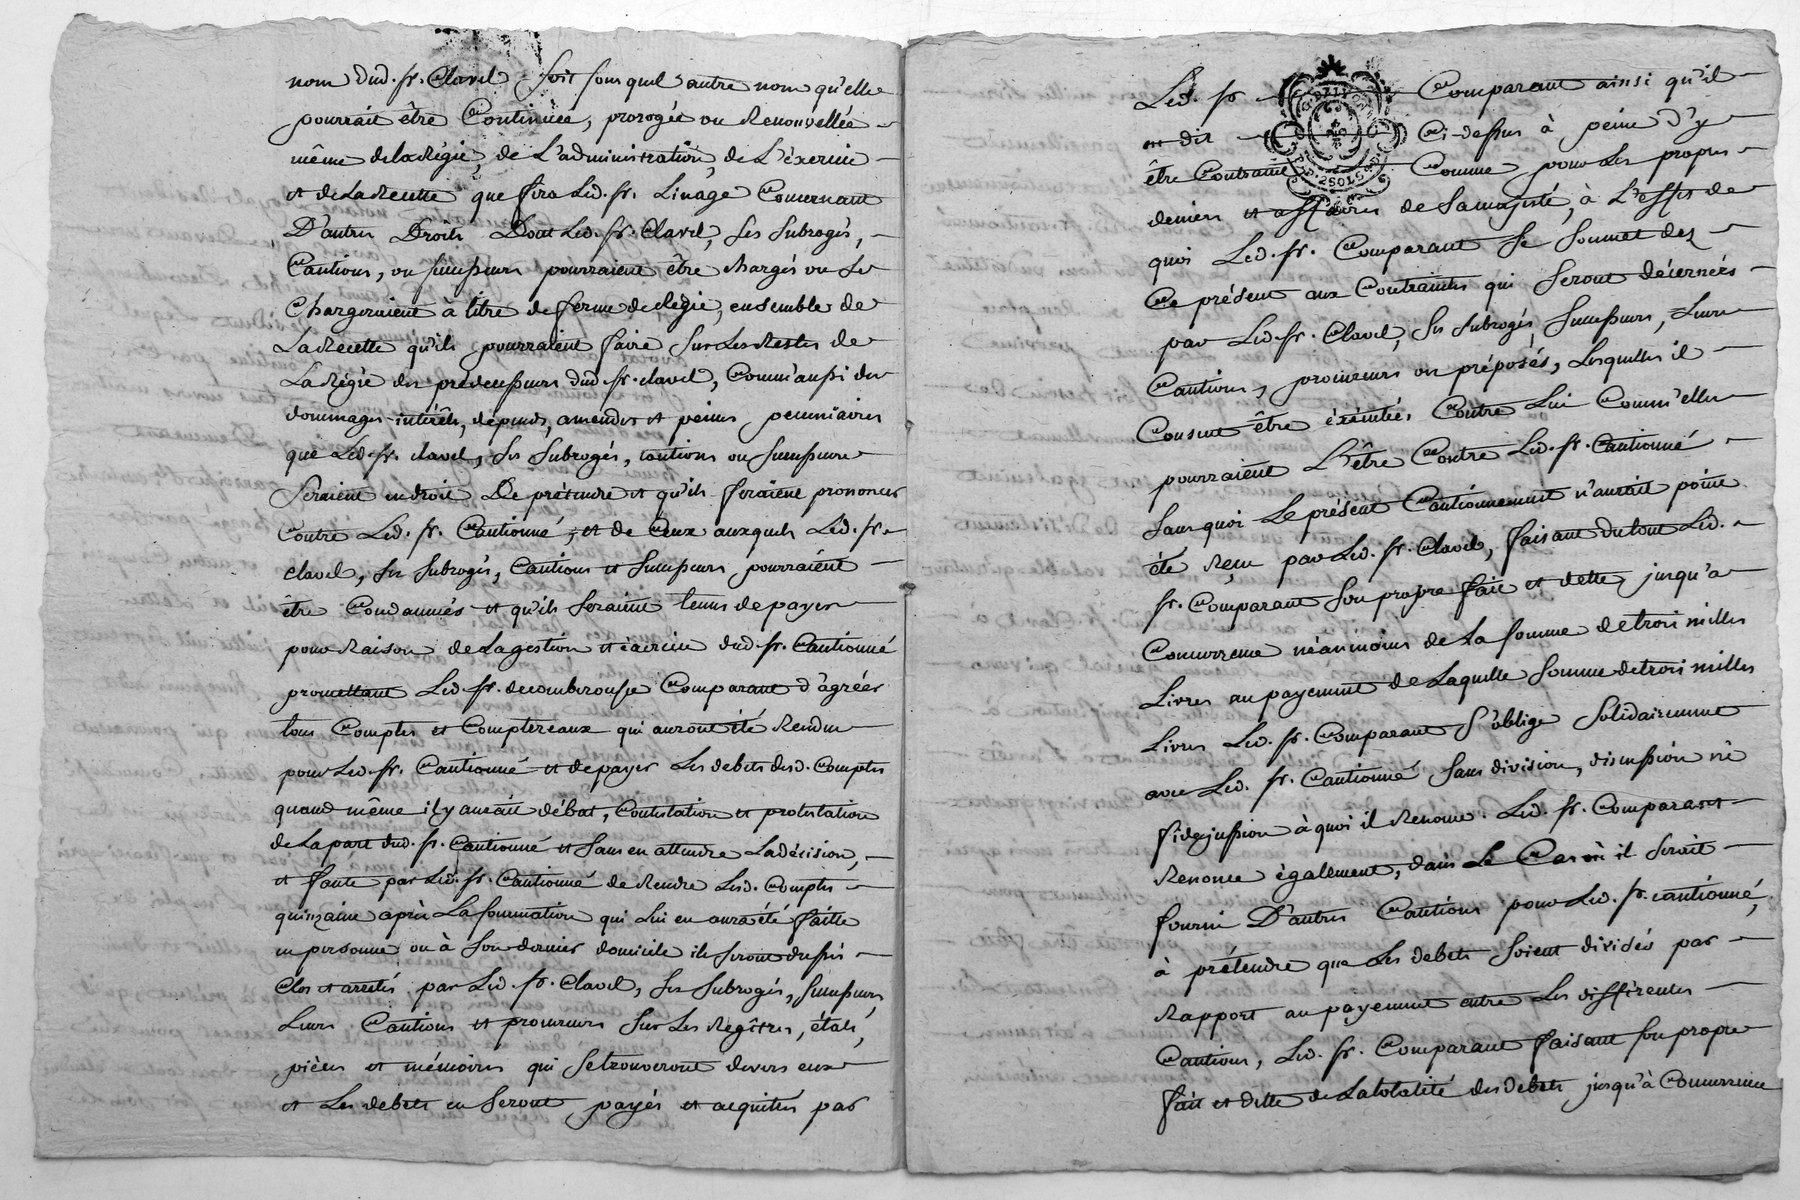 nom dud. sr. Clavel, soit sous quel autre nom qu'elle
pourrait être Continuée, prorogée ou Renouvellée
même de la Régie, de L'administration, de L'éxercice
et de La Recette que fera Led. sr. Linage Concernant
D'autres Droits Dont Led. sr. Clavel, ses subrogés,
Cautions, ou successeurs pourraient être chargés ou se
Chargeraient à titre de ferme de Régie, ensemble de
La Recette qu'ils pourraient faire sur Les Restes de
La Régie des prédecesseurs dud. sr. Clavel, Comm'aussi des
dommages-intérêts, dépends, amendes et peines pecuniaires
que Led. sr. Clavel, ses subrogés, cautions ou successeurs
seraient en droit De prétendre et qu'ils feraient prononcer
Contre Led. sr. Cautionné, et de Ceux auxquels Led. sr.
Clavel, ses subrogés, Cautions et successeurs pourraient
être Condamnés et qu'ils seraient tenus de payer
pour Raison de La gestion et éxercice dud. sr. Cautionné
promettant Led. sr. decomberousse Comparant d'agréer
tous Comptes et Comptereaux qui auront été Rendus
pour Led. sr. Cautionné et de payer Les debets desd. Comptes
quand même il y aurait débat, Contestation et protestation
de La part dud. sr. Cautionné et sans en attendre La décision,
et faute par Led. sr. Cautionné de Rendre Lesd. Comptes
quinzaine après La sommation qui Lui en aura été faitte
en personne ou à son dernier domicile ils seront dressés
Clos et arrestés par Led. sr. Clavel, ses subrogés, successeurs,
Leurs Cautions et procureurs sur Les Regîtres, états,
pièces et mémoires qui se trouveront devers eux
et Les debets en seront payés et acquittés par
Led. sr. Comparant ainsi qu'il
est dit Ci-dessus à peine d'y
être Contraint Comme pour Les propres
deniers et affaires de Sa majesté, à L'effet de
quoi Led. sr. Comparant se soumet dez
Ce présent aux Contraintes qui seront décernées
par Led. sr. Clavel, ses subrogés, successeurs, Leurs
Cautions, procureurs ou préposés, Lesquelles il
Consent être éxécutées Contre Lui Comm'elles
pourraient L'être Contre Led. sr. Cautionné
sans quoi Le présent Cautionnement n'aurait point
été Reçu par Led. sr. Clavel, faisant du tout Led.
sr. Comparant son propre fait et dette jusqu'a
Concurrence néanmoins de La somme de trois milles
Livres au payement de Laquelle somme de trois milles
Livres Led. sr. Comparant s'oblige solidairement
avec Led. sr. Cautionné sans division, discussion ni
fidejussion à quoi il Renonce. Led. sr. Comparant
Renonce également, dans Le Cas où il serait
fourni D'autres Cautions pour Led. sr. cautionné,
à prétendre que Les debets soient divisés par
Rapport au payement entre Les différentes
Cautions, Led. sr. Comparant faisant son propre
fait et dette de La totalité des debets jusqu'à Concurrence